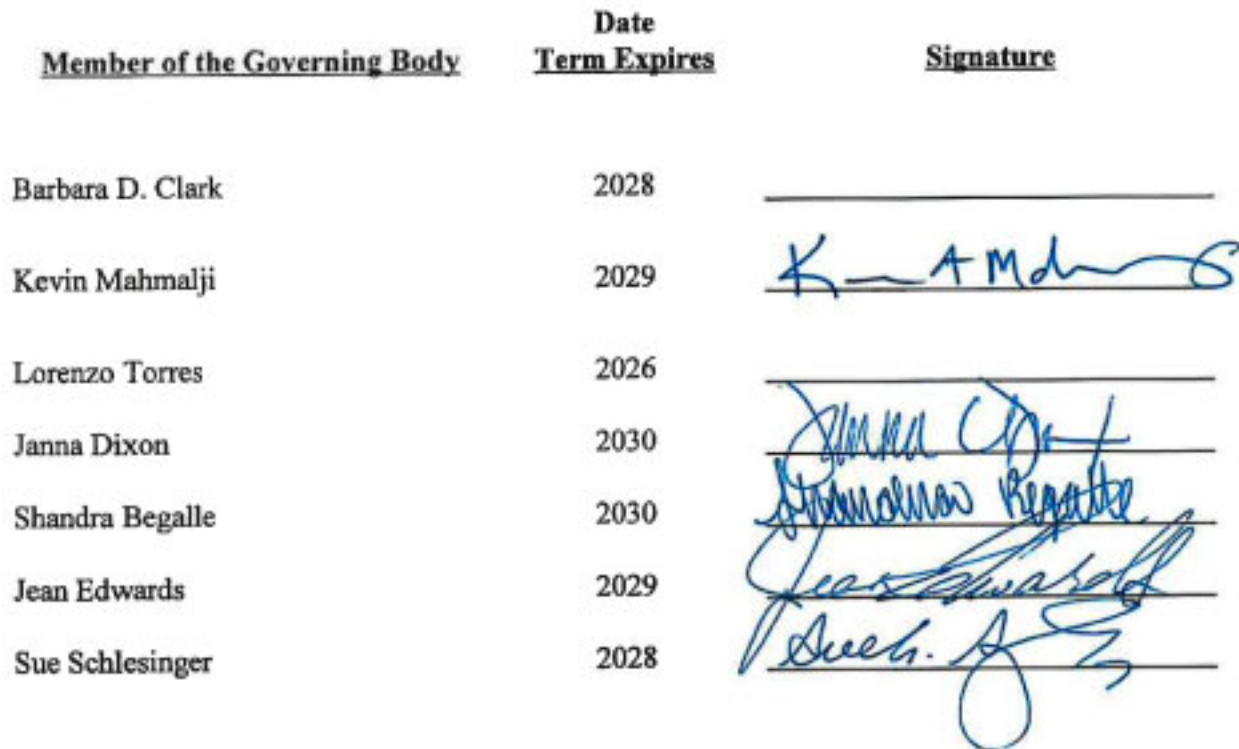 Date
Member of the Governing Body Term Expires Signature
Barbara D. Clark 2028
Kevin Mahmalji 2029 K A M
Lorenzo Torres 2026
Janna Dixon 2030 Janna
Shandra Begalle 2030 Begalle
Jean Edwards 2029 Jean Edwards
Sue Schlesinger 2028 Sue